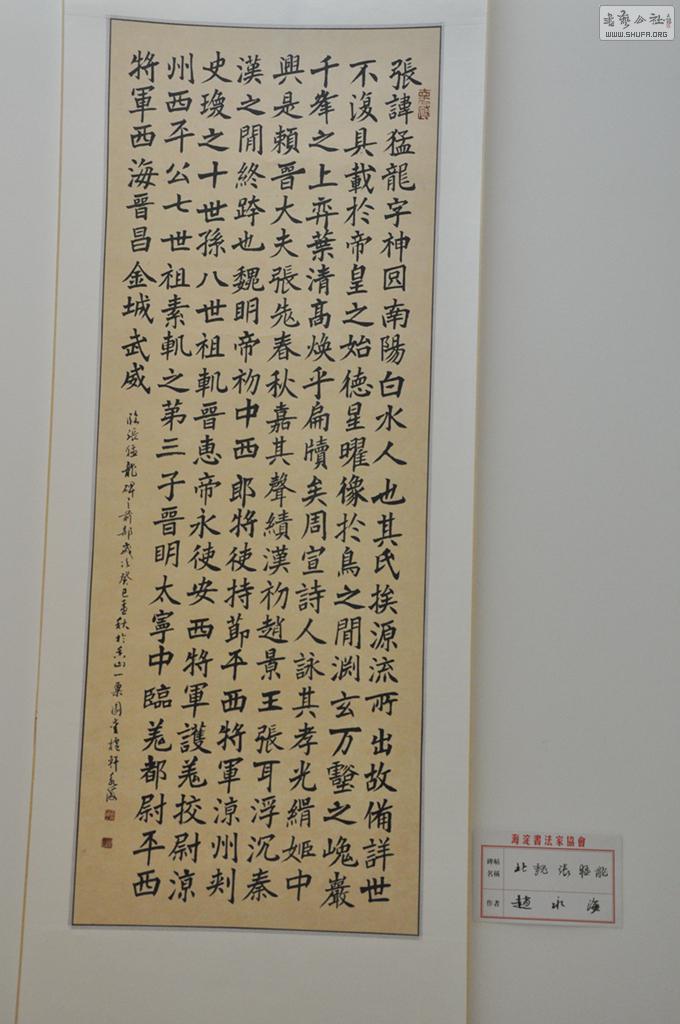 張諱猛龍字神囙南陽白水人也其氏挨源流所出故備詳世
不復具載於帝皇之始德星曜像於鳥之閒渊玄万壑之巍巖
千峯之上弈葉清髙焕乎扁牘矣周宣詩人詠其孝光緝姬中
興是賴晉大夫張老春秋嘉其聲績漢初趙景王張耳浮沉秦
漢之閒終跨也魏明帝初中西郎將使持節平西將軍涼州刾
史瓊之十世孫八世祖軌晉惠帝永使安西將軍護羗挍尉涼
州西平公七世祖素軌之第三子晉明太寧中臨羗都尉平西
將軍西海晉昌金城武威
臨張猛龍碑之前部歲次癸巳孟秋於香山一粟園
書藝公社
WWW.SHUFA.ORG
海淀書法家協會
碑帖名稱 北魏張猛龍
作者 趙永海